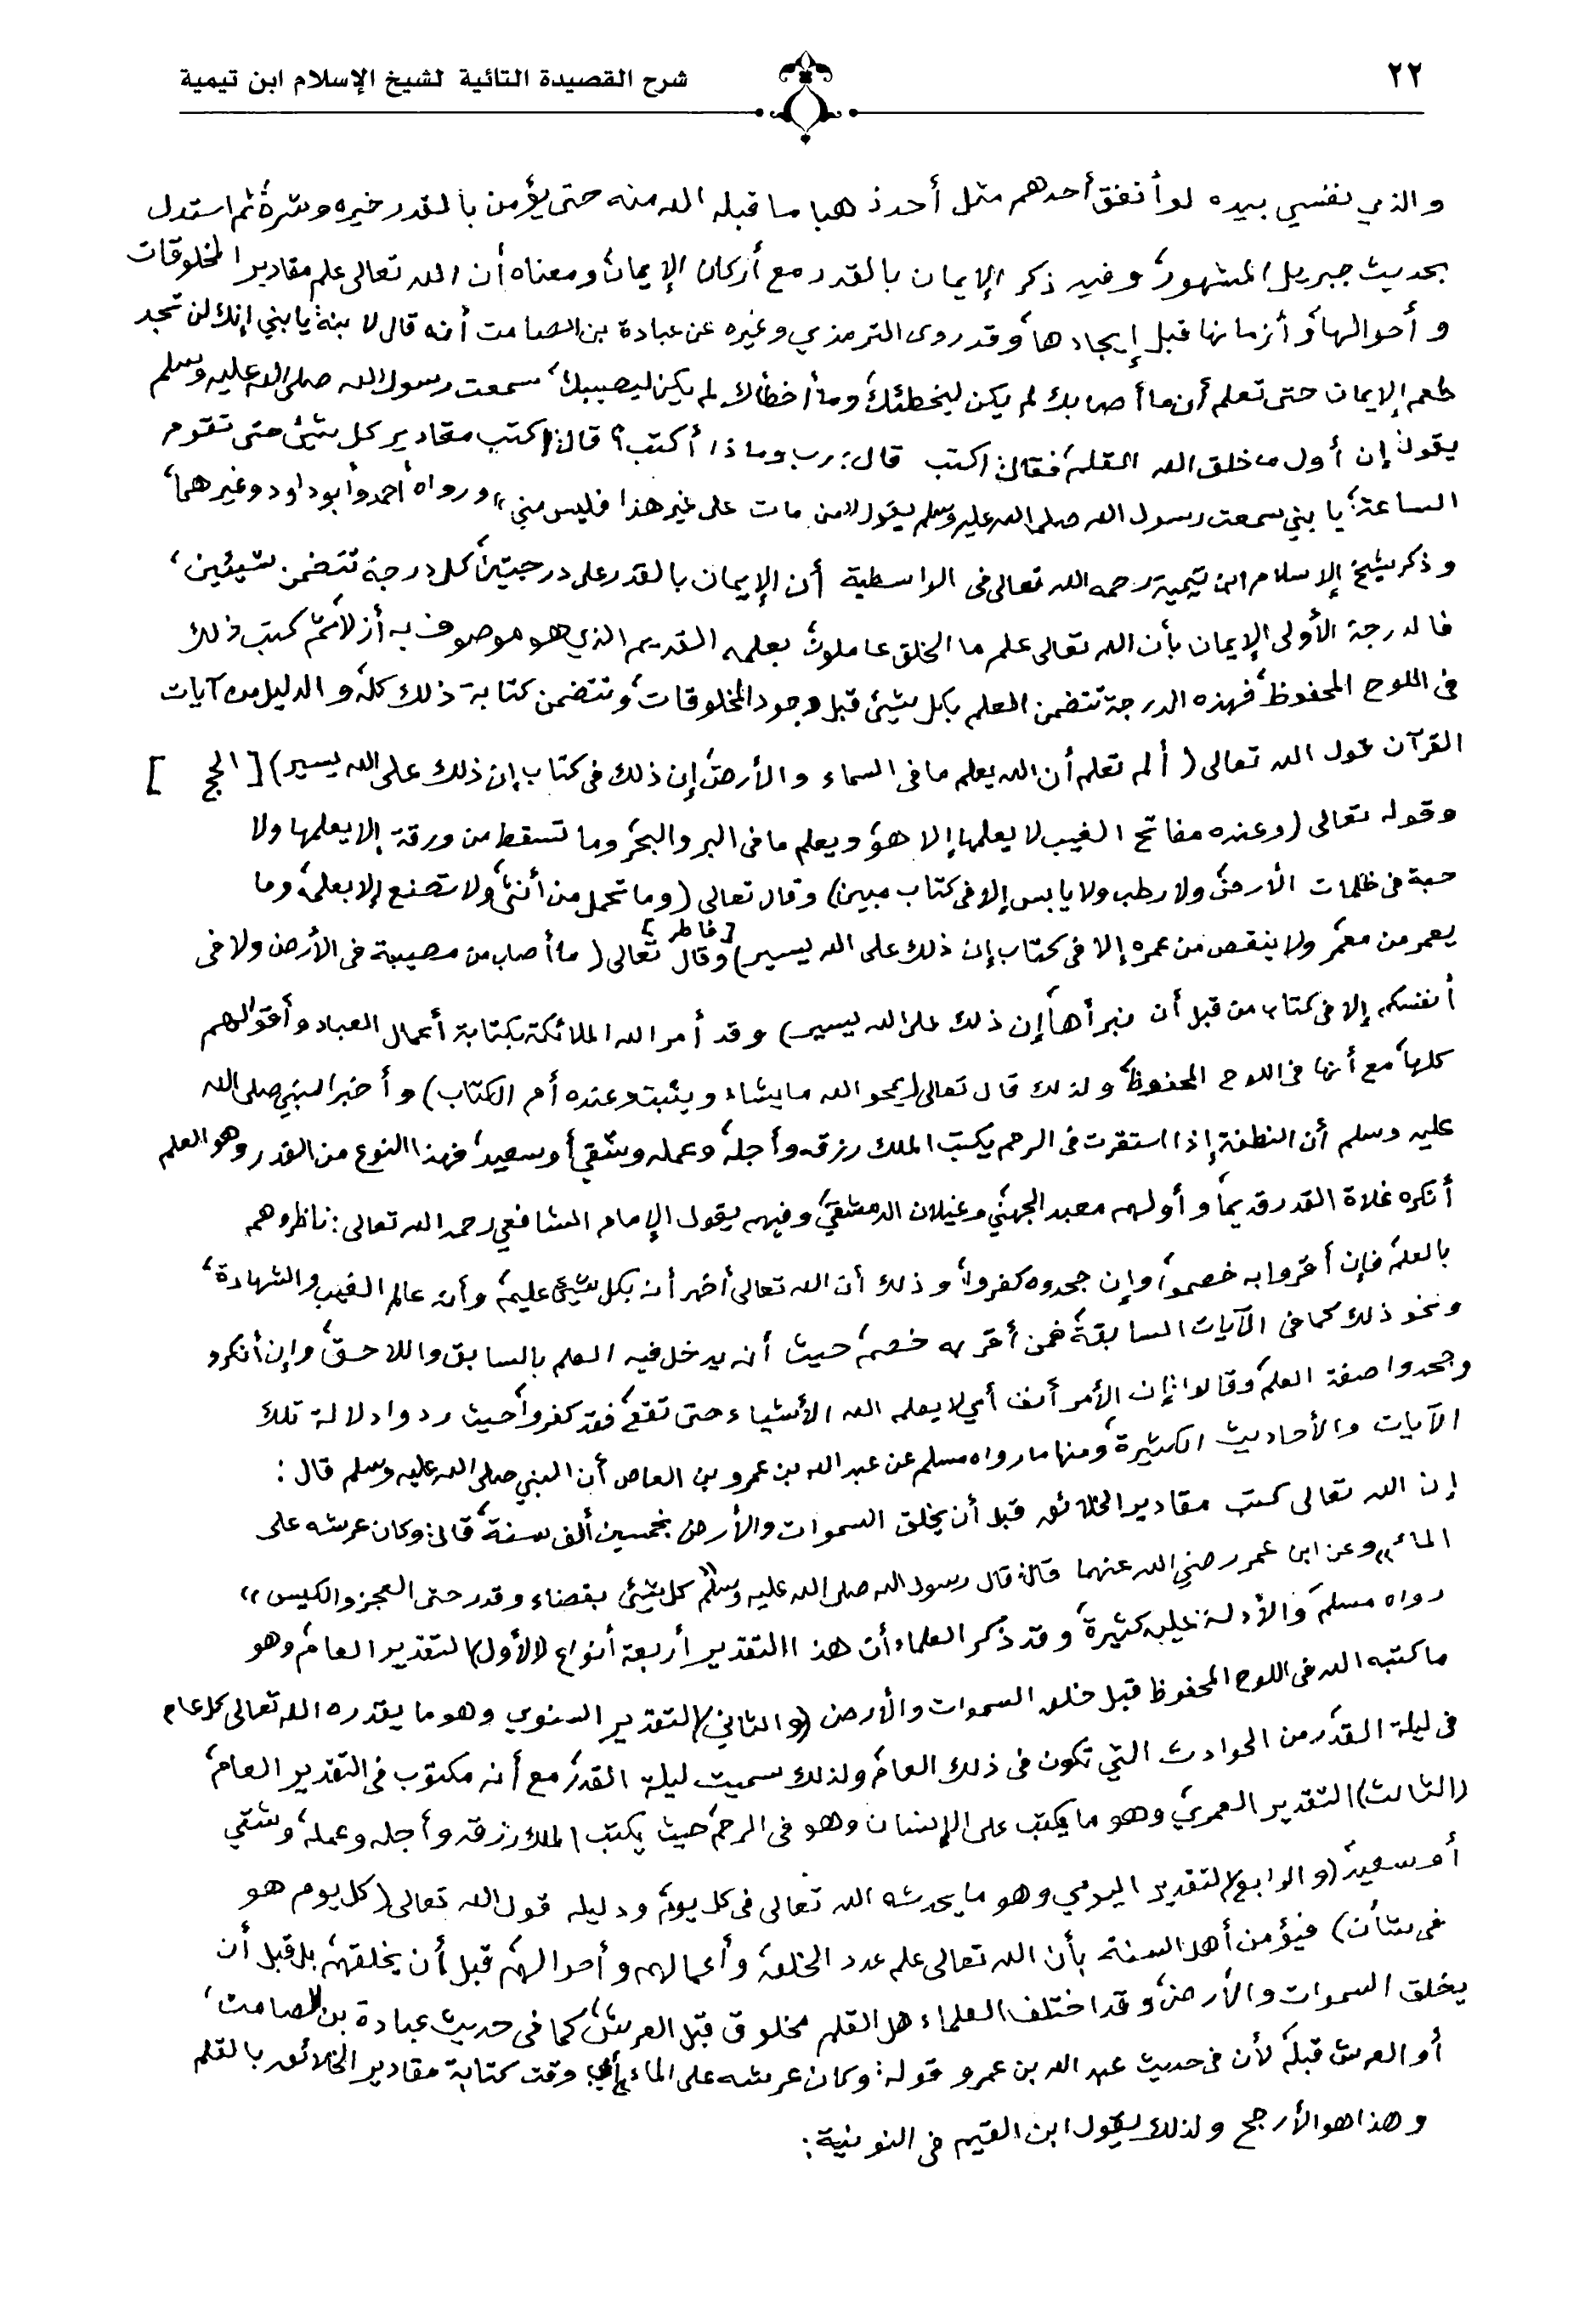 ٢٢
شرح القصيدة التائية لشيخ الإسلام ابن تيمية
والذي نفسي بيده لو أنفق أحدهم مثل أحد ذهبا ما قبله الله منه حتى يؤمن بالقدر خيره وشره، ثم استدل
بحديث جبريل المشهور، وفيه ذكر الإيمان بالقدر مع أركان الإيمان، ومعناه أن الله تعالى علم مقادير المخلوقات
وأحوالها، وأزمانها قبل إيجادها، وقد روى الترمذي وغيره عن عبادة بن الصامت أنه قال لابنه: يا بني إنك لن تجد
طعم الإيمان حتى تعلم أن ما أصابك لم يكن ليخطئك، وما أخطأك لم يكن ليصيبك، سمعت رسول الله صلى الله عليه وسلم
يقول: إن أول ما خلق الله القلم، فقال: اكتب قال: رب وماذا أكتب؟ قال: اكتب مقادير كل شيئ حتى تقوم
الساعة؛ يا بني سمعت رسول الله صلى الله عليه وسلم يقول «من مات على غير هذا فليس مني» ورواه أحمد وأبو داود وغيرهما،
وذكر شيخ الإسلام ابن تيمية رحمه الله تعالى فى الواسطية أن الإيمان بالقدر على درجتين، كل درجة تتضمن شيئين،
فالدرجة الأولى الإيمان بأن الله تعالى علم ما الخلق عاملون، بعلمه القديم الذي هو موصوف به أزلا، ثم كتب ذلك
فى اللوح المحفوظ، فهذه الدرجة تتضمن العلم بكل شيئ قبل وجود المخلوقات، وتتضمن كتابة ذلك كله، والدليل من آيات
القرآن قول الله تعالى (ألم تعلم أن الله يعلم ما فى السماء والأرض، إن ذلك فى كتاب إن ذلك على الله يسير) [الحج ]
وقوله تعالى (وعنده مفاتح الغيب لا يعلمها إلا هو، ويعلم ما فى البر والبحر، وما تسقط من ورقة إلا يعلمها ولا
حبة فى ظلمات الأرض، ولا رطب ولا يابس إلا فى كتاب مبين) وقال تعالى (وما تحمل من أنثى، ولا تضع إلا بعلمه، وما
يعمر من معمر، ولا ينقص من عمره إلا فى كتاب إن ذلك على الله يسير) [فاطر ] وقال تعالى (ما أصاب من مصيبة فى الأرض ولا فى
أنفسكم إلا فى كتاب من قبل أن نبرأها، إن ذلك على الله يسير) وقد أمر الله الملائكة بكتابة أعمال العباد وأقوالهم
كلها، مع أنها فى اللوح المحفوظ، ولذلك قال تعالى (يمحو الله ما يشاء ويثبت وعنده أم الكتاب) وأخبر النبي صلى الله
عليه وسلم أن النطفة إذا استقرت فى الرحم يكتب الملك رزقه وأجله، وعمله وشقي أو سعيد، فهذا النوع من القدر وهو العلم
أنكره غلاة القدر قديما، وأولهم معبد الجهني، وغيلان الدمشقي، وفيهم يقول الإمام الشافعي رحمه الله تعالى: ناظروهم
بالعلم، فإن أقروا به خصموا، وإن جحدوه كفروا، وذلك أن الله تعالى أخبر أنه بكل شيئ عليم، وأنه عالم الغيب والشهادة،
ونحو ذلك كما فى الآيات السابقة، فمن أقر به خصم، حيث أنه يدخل فيه العلم بالسابق واللاحق، وإن أنكروه
وجحدوا صفة العلم، وقالوا: إن الأمر أنف أي لا يعلم الله الأشياء حتى تقع، فقد كفروا، حيث ردوا دلالة تلك
الآيات والأحاديث الكثيرة، ومنها ما رواه مسلم عن عبد الله بن عمرو بن العاص أن النبي صلى الله عليه وسلم قال:
إن الله تعالى كتب مقادير الخلائق قبل أن يخلق السموات والأرض بخمسين ألف سنة، قال: وكان عرشه على
الماء» وعن ابن عمر رضي الله عنهما قال: قال رسول الله صلى الله عليه وسلم «كل شيئ بقضاء وقدر حتى العجز والكيس»
رواه مسلم، والأدلة عليه كثيرة، وقد ذكر العلماء أن هذا التقدير أربعة أنواع (الأول) التقدير العام، وهو
ما كتبه الله فى اللوح المحفوظ قبل خلق السموات والأرض (والثاني) التقدير السنوي وهو ما يقدره الله تعالى كل عام
فى ليلة القدر، من الحوادث التي تكون فى ذلك العام، ولذلك سميت ليلة القدر، مع أنه مكتوب فى التقدير العام،
(الثالث) التقدير العمري، وهو ما يكتب على الإنسان وهو فى الرحم، حيث يكتب الملك رزقه وأجله وعمله، وشقي
أو سعيد، (والرابع) التقدير اليومي وهو ما يحدثه الله تعالى فى كل يوم، ودليله قول الله تعالى (كل يوم هو
فى شأن) فيؤمن أهل السنة بأن الله تعالى علم عدد الخلق، وأعمالهم وأحوالهم، قبل أن يخلقهم، بل قبل أن
يخلق السموات والأرض، وقد اختلف العلماء هل القلم مخلوق قبل العرش، كما فى حديث عبادة بن الصامت،
أو العرش قبله، لأن فى حديث عبد الله بن عمرو قوله: وكان عرشه على الماء، أي وقت كتابة مقادير الخلائق بالقلم
وهذا هو الأرجح ولذلك يقول ابن القيم فى النونية: